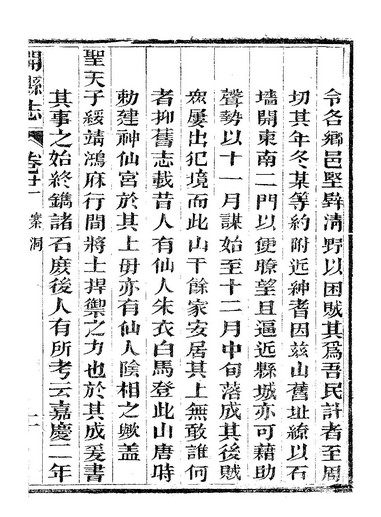 令各鄉邑堅壁清野以困賊其爲吾民計者至周
切其年冬某等約附近紳耆因玆山舊址繚以石
墻開東南二門以便瞭望且逼近縣城亦可藉助
聲勢以十一月謀始至十二月中旬落成其後賊
衆屢出犯境而此山千餘家安居其上無敢誰何
者抑舊志載昔人有仙人朱衣白馬登此山唐時
勅建神仙宮於其上毋亦有仙人陰相之歟蓋
聖天子綏靖鴻庥行間將士捍禦之力也於其成爰書
其事之始終鐫諸石庻後人有所考云嘉慶二年
開縣志 卷廿一 寨洞